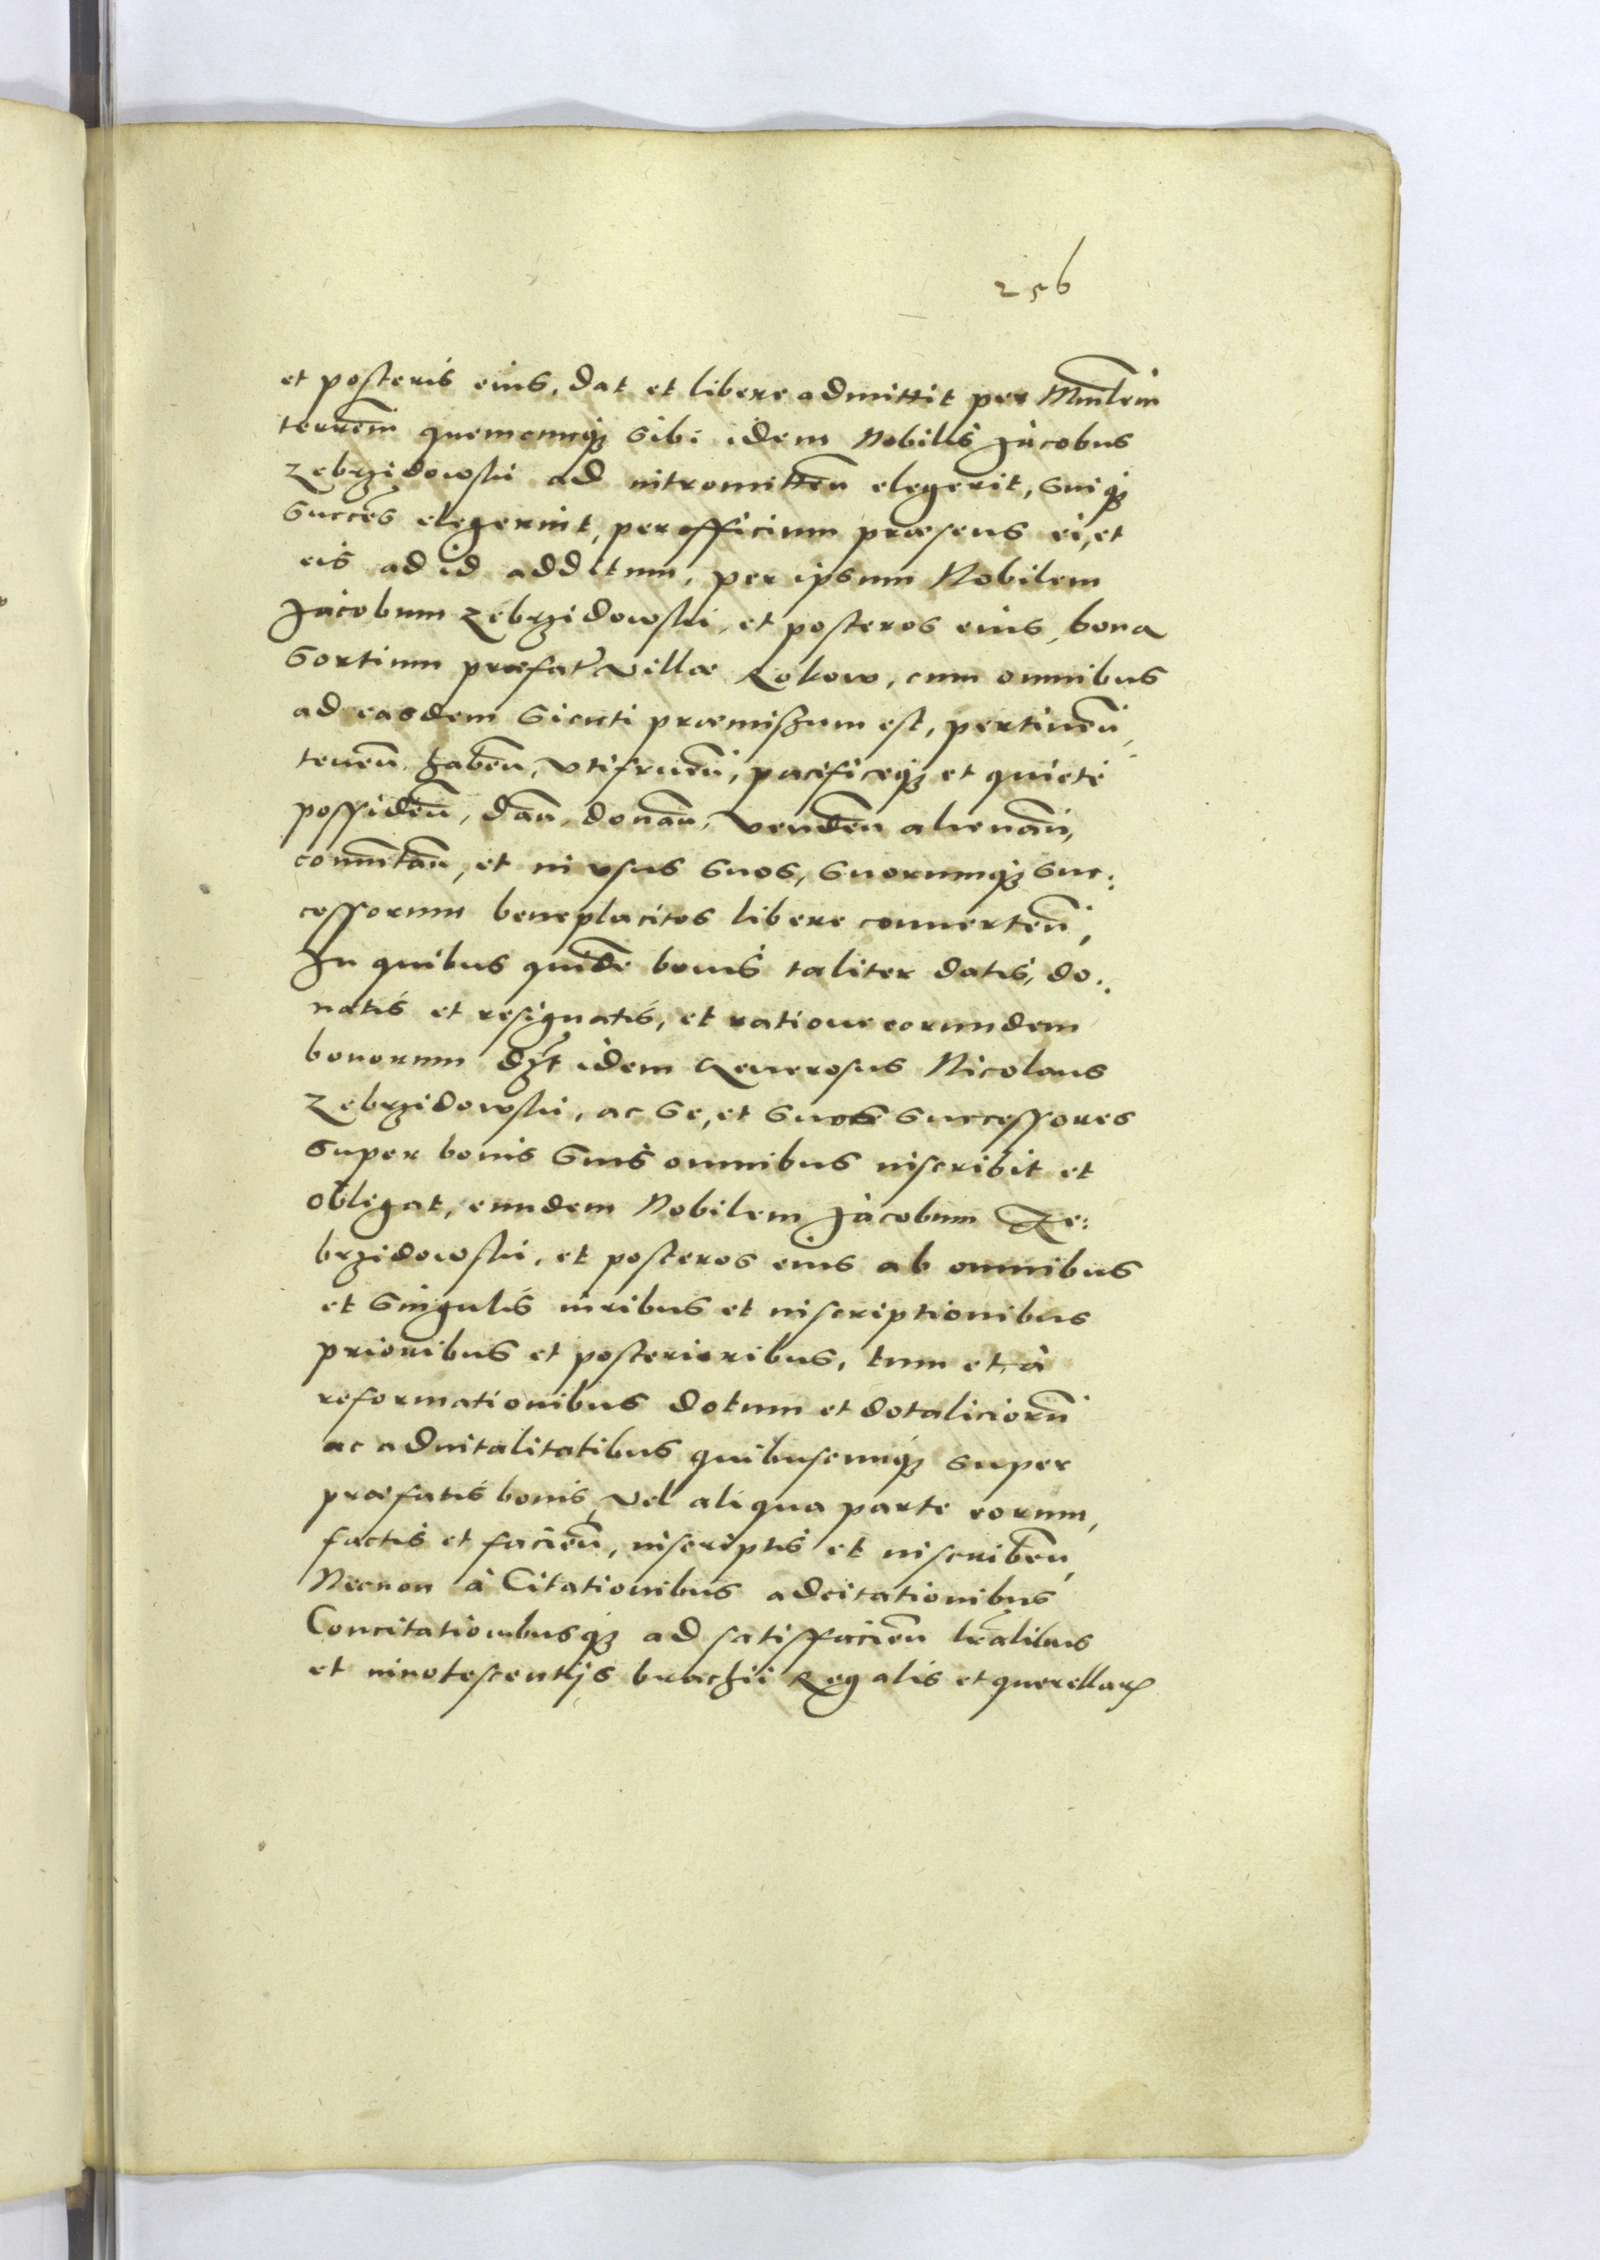 256
et posteris eius, dat et libere admittit per Minlem
terrem̄ quemcunq3 sibi idem Nobilis Jacobus
Zebrzidowski ad intromitten̄ elegerit, suiq3
succēs elegerint, per officium præsens ei, et
eis ad id additum, per ipsum Nobilem
Jacobum Zebrzidowski, et posteros eius, bona
sortium præfat' villæ Rokow, cum omnibus
ad easdem sicuti præmissum est, pertinen̄,
tenen̄ haben̄, vtifruen̄, pacificeq3 et quietè
possiden̄, dan̄, donan̄, venden̄ alienan̄,
commutan̄, et in vsus suos, suorumq3 suc:
cessorum beneplacitos libere conuerten̄,
In quibus quidē bonis taliter datis, do:
natis et resignatis, et ratione eorundem
bonorum idem Generosus Nicolaus
Zebrzidowski, ac se, et suos successores
super bonis suis omnibus inscribit et
obligat, eundem Nobilem Jacobum Ze:
brzidowski, et posteros eius ab omnibus
et singulis iuribus et inscriptionibus
prioribus et posterioribus, tum et à
reformationibus dotum et dotaliciorū
ac aduitalitatibus quibuscunq3 super
præfatis bonis, vel aliqua parte eorum,
factis et facien̄, inscriptis et inscriben̄,
Necnon à Citationibus adcitationibus
Concitationibusq3 ad satisfacien̄ lr̄alibus
et innotescentijs brachii Regalis et querellarꝝ